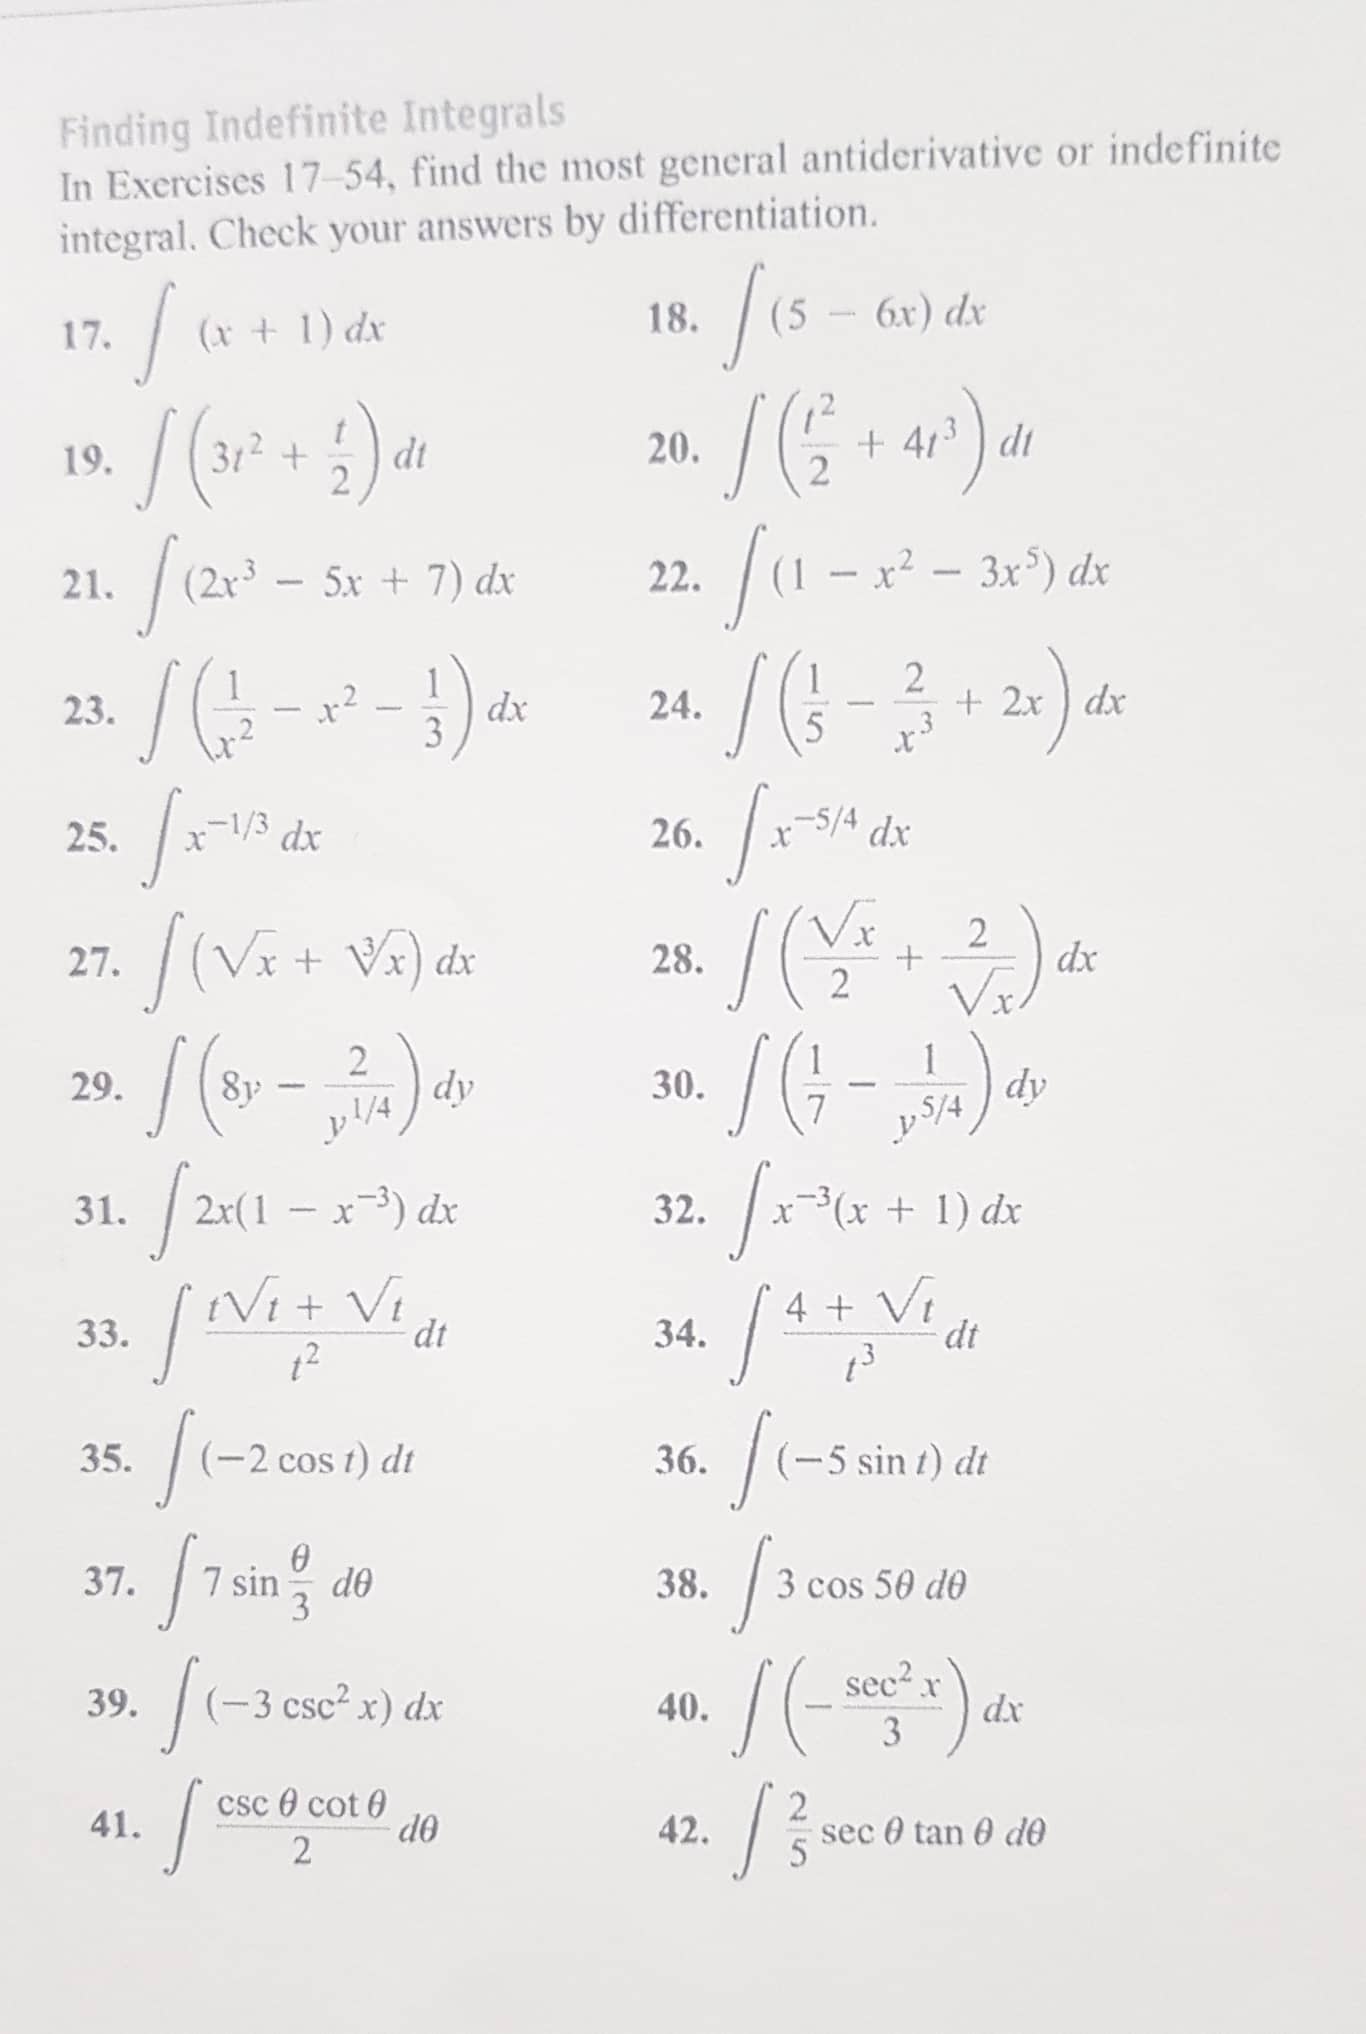 Finding Indefinite Integrals
In Exercises 17–54, find the most general antiderivative or indefinite
integral. Check your answers by differentiation.
17. ∫ (x + 1) dx
18. ∫ (5 − 6x) dx
19. ∫ (3t² + t/2) dt
20. ∫ (t²/2 + 4t³) dt
21. ∫ (2x³ − 5x + 7) dx
22. ∫ (1 − x² − 3x⁵) dx
23. ∫ (1/x² − x² − 1/3) dx
24. ∫ (1/5 − 2/x³ + 2x) dx
25. ∫ x^(−1/3) dx
26. ∫ x^(−5/4) dx
27. ∫ (√x + ∛x) dx
28. ∫ (√x/2 + 2/√x) dx
29. ∫ (8y − 2/y^(1/4)) dy
30. ∫ (1/7 − 1/y^(5/4)) dy
31. ∫ 2x(1 − x⁻³) dx
32. ∫ x⁻³(x + 1) dx
33. ∫ (t√t + √t)/t² dt
34. ∫ (4 + √t)/t³ dt
35. ∫ (−2 cos t) dt
36. ∫ (−5 sin t) dt
37. ∫ 7 sin θ/3 dθ
38. ∫ 3 cos 5θ dθ
39. ∫ (−3 csc² x) dx
40. ∫ (− sec² x/3) dx
41. ∫ (csc θ cot θ)/2 dθ
42. ∫ 2/5 sec θ tan θ dθ